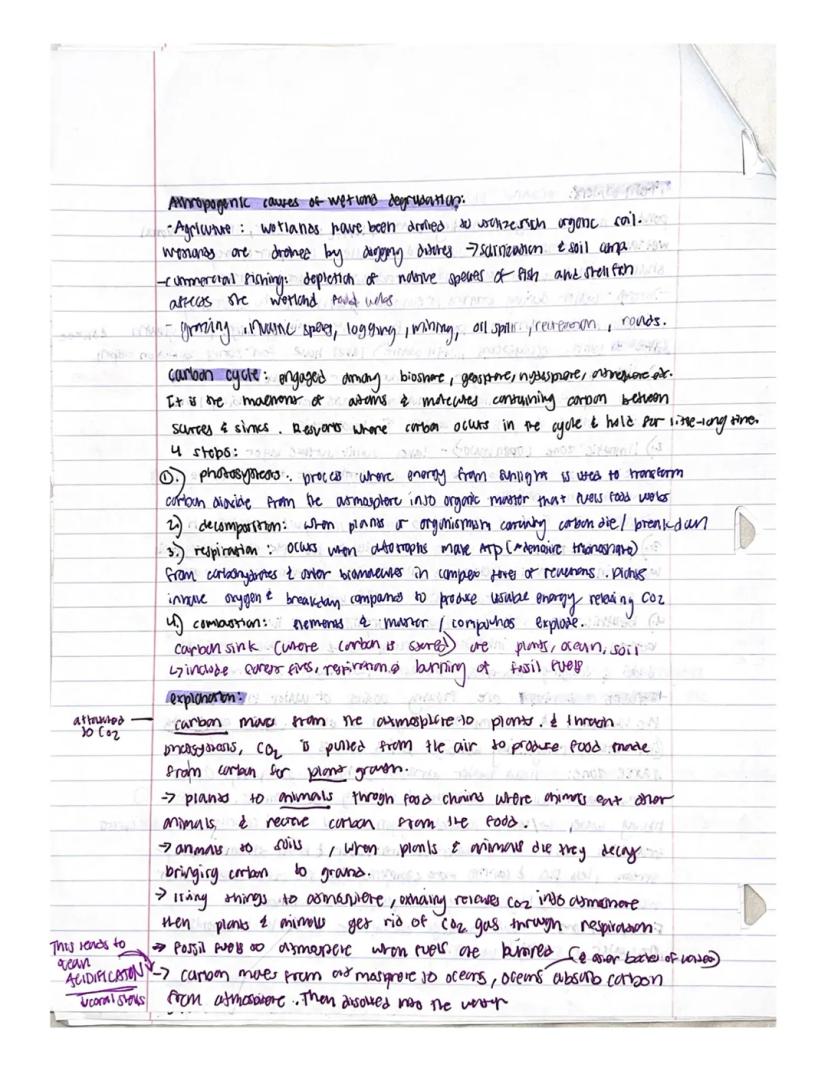 Anthropogenic causes of wetland degradation:
- Agriculture : wetlands have been drained to utilize rich organic soil.
wetlands are drained by digging ditches → salinization & soil comp.
- commercial fishing: depletion of native species of fish and shellfish
affects the wetland food webs
- grazing, invasive species, logging, mining, oil spills, recreation, roads.
carbon cycle: engaged among biosphere, geosphere, hydrosphere, atmosphere etc.
It is the movement of atoms & molecules containing carbon between
sources & sinks. Reservoirs where carbon occurs in the cycle & hold for little-long time.
4 steps:
1.) photosynthesis: process where energy from sunlight is used to transform
carbon dioxide from the atmosphere into organic matter that fuels food webs
2.) decomposition: when plants or organisms carrying carbon die / breakdown
3.) respiration : occurs when autotrophs make ATP (Adenosine triphosphate)
from carbohydrates & other biomolecules in complex series of reactions.
inhale oxygen & breakdown compounds to produce usable energy releasing CO2
4) combustion: elements & matter / compounds explode.
carbon sink (where carbon is stored) are plants, ocean, soil
↳ include forest fires, respiration & burning of fossil fuels
explanation:
attached to CO2
carbon moves from the atmosphere to plants. & through
photosynthesis, CO2 is pulled from the air to produce food made
from carbon for plant growth.
→ plants to animals through food chains where animals eat other
animals, & receive carbon from the food.
→ animals to soils, when plants & animals die they decay
bringing carbon to ground.
→ living things to atmosphere, exhaling releases CO2 into atmosphere
then plants & animals get rid of CO2 gas through respiration
→ Fossil fuels to atmosphere when fuels are burned
(& other bodies of water)
→ carbon moves from atmosphere to oceans, oceans absorb carbon
from atmosphere. Then dissolved into the water
This leads to
ocean
ACIDIFICATION